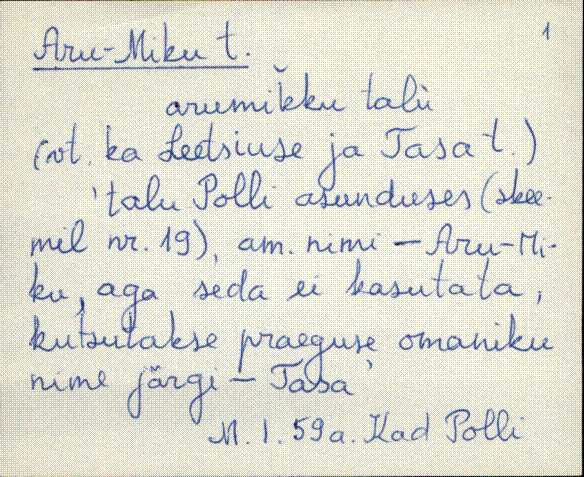 1
Aru-Miku t.
arumik̆ku talù
(vt. ka Leetsiuse ja Tasa t.)
'talu Polli asunduses (skee-
mil nr. 19), am. nimi – Aru-Mi-
ku, aga seda ei kasutata,
kutsutakse praeguse omaniku
nime järgi – Tasa'
M. I. 59a. Kad Polli